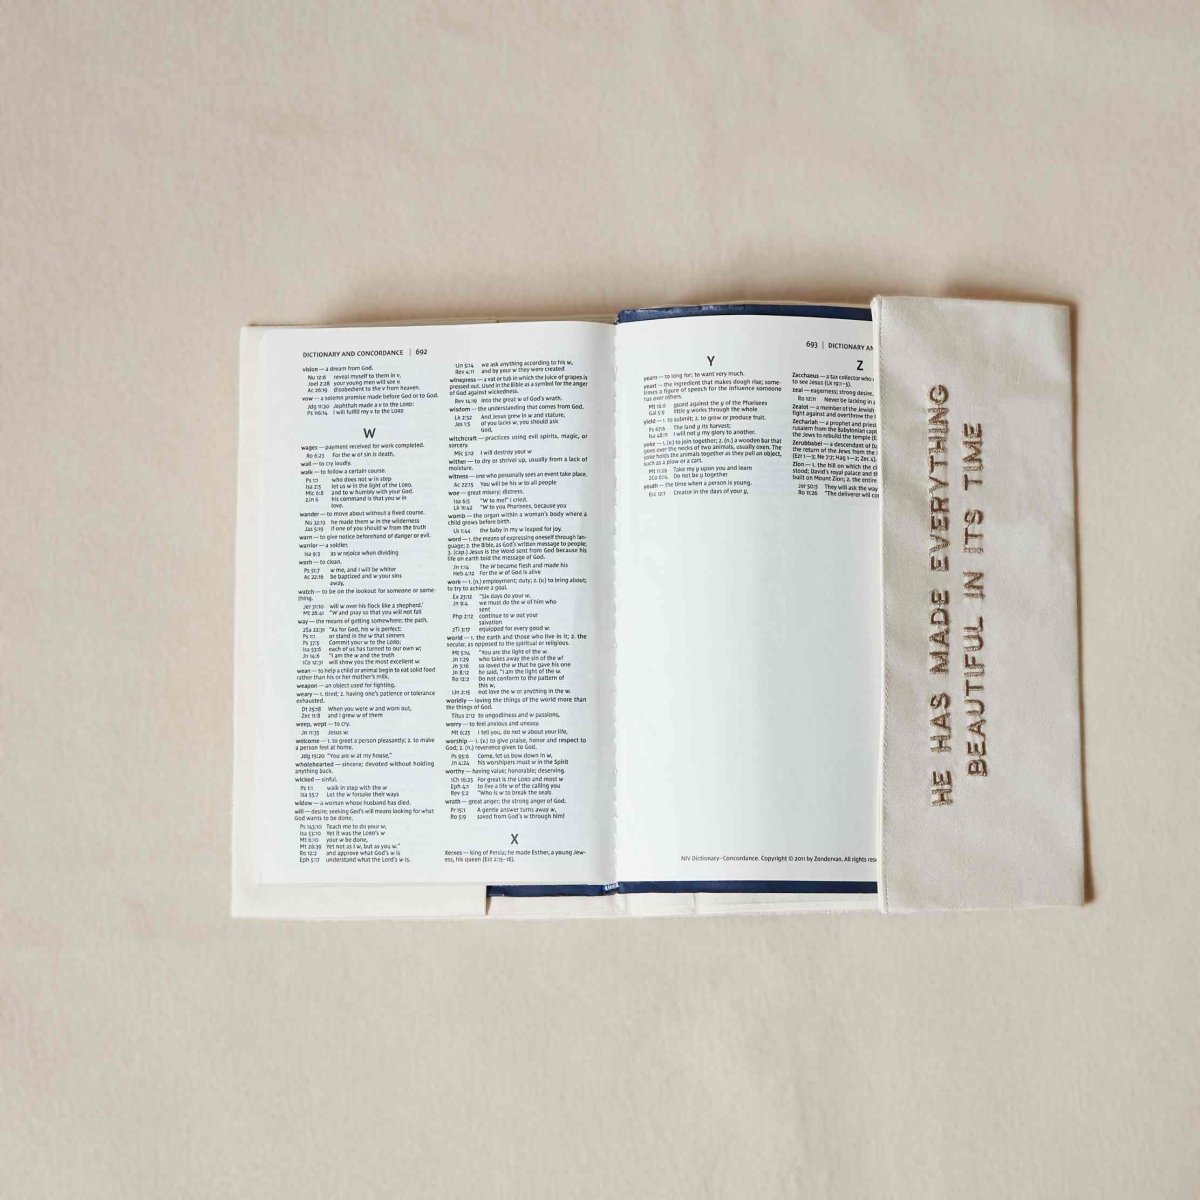 DICTIONARY AND CONCORDANCE | 692
vision — a dream from God.
Nu 12:6 reveal myself to them in v,
Joel 2:28 your young men will see v.
Ac 26:19 disobedient to the v from heaven.
vow — a solemn promise made before God or to God.
Jdg 11:30 Jephthah made a v to the LORD:
Ps 116:14 I will fulfill my v to the LORD
W
wages — payment received for work completed.
Ro 6:23 For the w of sin is death,
wail — to cry loudly.
walk — to follow a certain course.
Ps 1:1 who does not w in step
Isa 2:5 let us w in the light of the LORD.
Mic 6:8 and to w humbly with your God.
2Jn 6 his command is that you w in
love.
wander — to move about without a fixed course.
Nu 32:13 he made them w in the wilderness
Jas 5:19 if one of you should w from the truth
warn — to give notice beforehand of danger or evil.
warrior — a soldier.
Isa 9:3 as w rejoice when dividing
wash — to clean.
Ps 51:7 w me, and I will be whiter
Ac 22:16 be baptized and w your sins
away,
watch — to be on the lookout for someone or some-
thing.
Jer 31:10 will w over his flock like a shepherd.'
Mt 26:41 "W and pray so that you will not fall
way — the means of getting somewhere; the path.
2Sa 22:31 "As for God, his w is perfect:
Ps 1:1 or stand in the w that sinners
Ps 37:5 Commit your w to the LORD;
Isa 53:6 each of us has turned to our own w;
Jn 14:6 "I am the w and the truth
1Co 12:31 will show you the most excellent w.
wean — to help a child or animal begin to eat solid food
rather than his or her mother's milk.
weapon — an object used for fighting.
weary — 1. tired; 2. having one's patience or tolerance
exhausted.
Dt 25:18 When you were w and worn out,
Zec 11:8 and I grew w of them
weep, wept — to cry.
Jn 11:35 Jesus w.
welcome — 1. to greet a person pleasantly; 2. to make
a person feel at home.
Jdg 19:20 "You are w at my house,"
wholehearted — sincere; devoted without holding
anything back.
wicked — sinful.
Ps 1:1 walk in step with the w
Isa 55:7 Let the w forsake their ways
widow — a woman whose husband has died.
will — desire; seeking God's will means looking for what
God wants to be done.
Ps 143:10 Teach me to do your w,
Isa 53:10 Yet it was the LORD's w
Mt 6:10 your w be done,
Mt 26:39 Yet not as I w, but as you w."
Ro 12:2 and approve what God's w is
Eph 5:17 understand what the Lord's w is.
1Jn 5:14 we ask anything according to his w,
Rev 4:11 and by your w they were created
winepress — a vat or tub in which the juice of grapes is
pressed out. Used in the Bible as a symbol for the anger
of God against wickedness.
Rev 14:19 into the great w of God's wrath.
wisdom — the understanding that comes from God.
Lk 2:52 And Jesus grew in w and stature,
Jas 1:5 of you lacks w, you should ask
God,
witchcraft — practices using evil spirits, magic, or
sorcery.
Mic 5:12 I will destroy your w
wither — to dry or shrivel up, usually from a lack of
moisture.
witness — one who personally sees an event take place.
Ac 22:15 You will be his w to all people
woe — great misery; distress.
Isa 6:5 "W to me!" I cried.
Lk 11:42 "W to you Pharisees, because you
womb — the organ within a woman's body where a
child grows before birth.
Lk 1:44 the baby in my w leaped for joy.
word — 1. the means of expressing oneself through lan-
guage; 2. the Bible, as God's written message to people;
3. (cap.) Jesus is the Word sent from God because his
life on earth told the message of God.
Jn 1:14 The W became flesh and made his
Heb 4:12 For the w of God is alive
work — 1. (n.) employment; duty; 2. (v.) to bring about;
to try to achieve a goal.
Ex 23:12 "Six days do your w,
Jn 9:4 we must do the w of him who
sent
Php 2:12 continue to w out your
salvation
2Ti 3:17 equipped for every good w.
world — 1. the earth and those who live in it; 2. the
secular, as opposed to the spiritual or religious.
Mt 5:14 "You are the light of the w.
Jn 1:29 who takes away the sin of the w!
Jn 3:16 so loved the w that he gave his one
Jn 8:12 he said, "I am the light of the w.
Ro 12:2 Do not conform to the pattern of
this w,
1Jn 2:15 not love the w or anything in the w.
worldly — loving the things of the world more than
the things of God.
Titus 2:12 to ungodliness and w passions,
worry — to feel anxious and uneasy.
Mt 6:25 I tell you, do not w about your life,
worship — 1. (v.) to give praise, honor and respect to
God; 2. (n.) reverence given to God.
Ps 95:6 Come, let us bow down in w,
Jn 4:24 his worshipers must w in the Spirit
worthy — having value; honorable; deserving.
1Ch 16:25 For great is the LORD and most w
Eph 4:1 to live a life w of the calling you
Rev 5:2 "Who is w to break the seals
wrath — great anger; the strong anger of God.
Pr 15:1 A gentle answer turns away w,
Ro 5:9 saved from God's w through him!
X
Xerxes — king of Persia; he made Esther, a young Jew-
ess, his queen (Est 2:15–18).
693 | DICTIONARY AN
Y
yearn — to long for; to want very much.
yeast — the ingredient that makes dough rise; some-
times a figure of speech for the influence someone
has over others.
Mt 16:6 guard against the y of the Pharisees
Gal 5:9 little y works through the whole
yield — 1. to submit; 2. to grow or produce fruit.
Ps 67:6 The land y its harvest;
Isa 48:11 I will not y my glory to another.
yoke — 1. (v.) to join together; 2. (n.) a wooden bar that
goes over the necks of two animals, usually oxen. The
yoke holds the animals together as they pull an object,
such as a plow or a cart.
Mt 11:29 Take my y upon you and learn
2Co 6:14 Do not be y together
youth — the time when a person is young.
Ecc 12:1 Creator in the days of your y,
Z
Zacchaeus — a tax collector who
to see Jesus (Lk 19:1–5).
zeal — eagerness; strong desire.
Ro 12:11 Never be lacking in
Zealot — a member of the Jewish
fight against and overthrow the
Zechariah — a prophet and priest
rusalem from the Babylonian capt
the Jews to rebuild the temple (E
Zerubbabel — a descendant of Da
the return of the Jews from the
(Ezr 1—3; Ne 7:7; Hag 1—2; Zec 4).
Zion — 1. the hill on which the ci
stood; David's royal palace and th
built on Mount Zion; 2. the entire
Jer 50:5 They will ask the way
Ro 11:26 "The deliverer will co
NIV Dictionary–Concordance. Copyright © 2011 by Zondervan. All rights rese
HE HAS MADE EVERYTHING
BEAUTIFUL IN ITS TIME